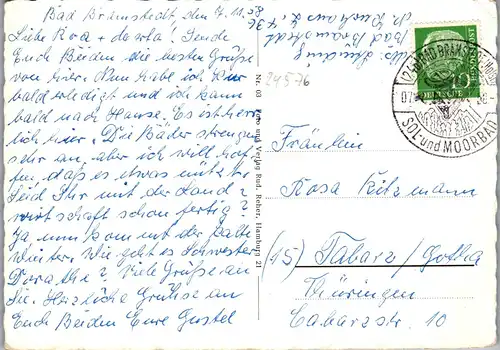 Bad Bramstedt, den 7. 11. 58
Liebe Rosa + Dortha! Sende
Euch Beiden die besten Grüße
von hier. Nun habe ich Kur
bald erledigt und ich kann
bald nach Hause. Es ist herr
lich hier. Die Bäder strengen
sehr an, aber ich will hof
fen, daß es etwas nützt.
Seid Ihr mit der Land
wirtschaft schon fertig?
Ja, nun kommt der kalte
Winter. Wie geht es Schwester
Dorathe? Viele Grüße an
Sie. Herzliche Grüße an
Euch Beiden Eure Gustel
Bad Bramstedt
24576
Nr. 03
Foto und Verlag Rud. Reher, Hamburg 21
DEUTSCHE BUNDESPOST
10
BAD BRAMSTEDT
SOL- und MOORBAD
Fräulein
Rosa Kitzmann
(15) Tabarz/Gotha
Thüringen
Cabarzstr. 10